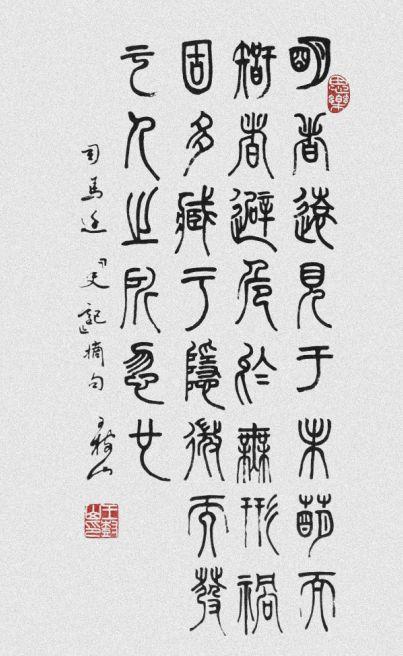 明者遠見于未萌而
智者避危於無形禍
固多藏于隱微而發
于人之所忽也
司馬迁『史記』摘句